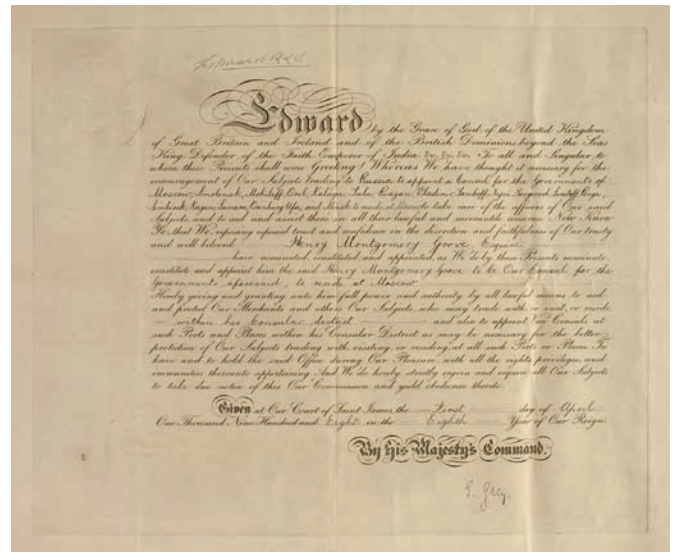 Edward R & I
Edward by the Grace of God, of the United Kingdom
of Great Britain and Ireland and of the British Dominions beyond the Seas
King, Defender of the Faith, Emperor of India &c. &c. &c. To all and Singular to
whom these Presents shall come Greeting! Whereas We have thought it necessary for the
encouragement of Our Subjects trading to Russia to appoint a Consul for the Governments of
Moscow, Smolensk, Mohileff, Orel, Kaluga, Tula, Riazan, Vladimir, Tamboff, Nijni Novgorod,
Simbirsk, Kazan, Samara, Orenburg, Ufa, and to reside at Moscow to take care of the affairs of Our said
Subjects, and to aid and assist them in all their lawful and mercantile concerns Now Know
Ye that We, reposing especial trust and confidence in the discretion and faithfulness of Our trusty
and well beloved Henry Montgomery Grove Esquire
have nominated, constituted and appointed, as We do by these Presents nominate,
constitute and appoint him the said Henry Montgomery Grove to be Our Consul for the
Governments aforesaid, to reside at Moscow
Hereby giving and granting unto him full power and authority by all lawful means, to aid
and protect Our Merchants and others Our Subjects, who may trade with, or visit, or reside
within his Consular district and also to appoint Vice Consuls at
such Ports and Places within his Consular District as may be necessary for the better
protection of Our Subjects trading with, visiting, or residing at all such Ports or Places To
have and to hold the said Office during Our Pleasure, with all the rights, privileges, and
immunities thereunto appertaining. And We do hereby strictly enjoin and require all Our Subjects
to take due notice of this Our Commission and yield obedience thereto
Given at Our Court of Saint James, the First day of April
One Thousand Nine Hundred and Eight in the Eighth Year of Our Reign
By His Majesty's Command.
E. Grey.